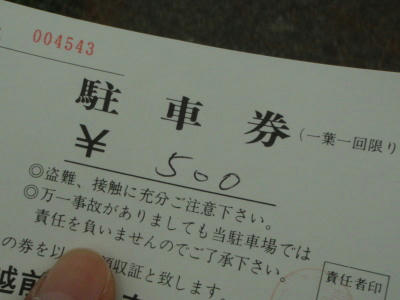 004543
駐車券(一葉一回限り
¥ 500
◎盗難、接触に充分ご注意下さい。
◎万一事故がありましても当駐車場では
責任を負いませんのでご了承下さい。
の券を以 領収証と致します。
越前
責任者印